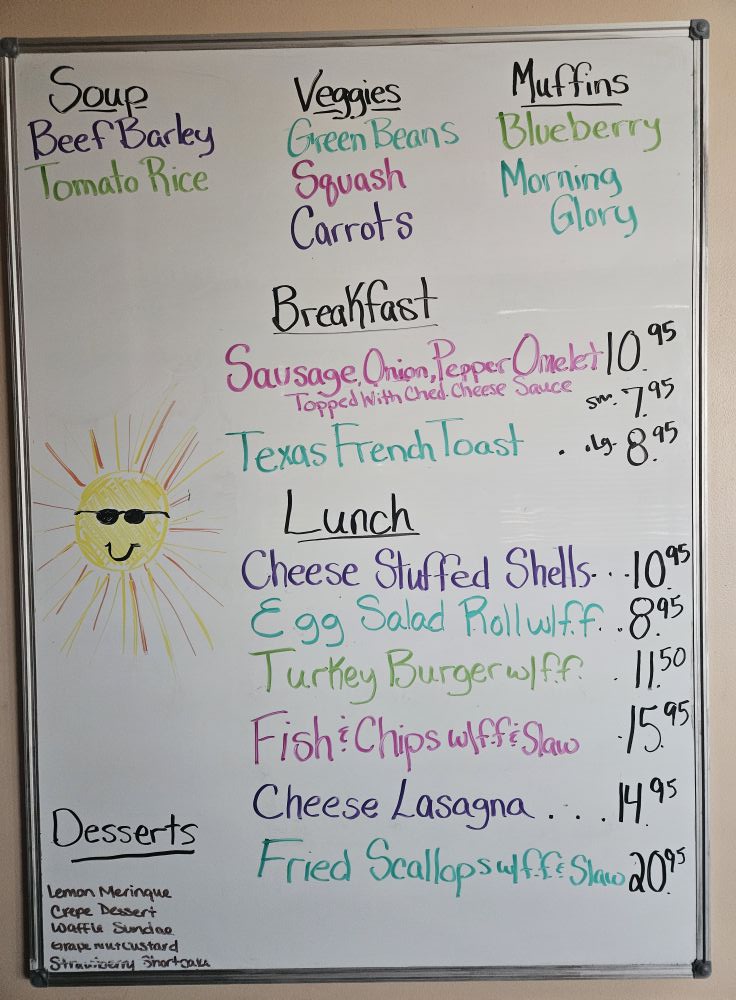 Soup
Beef Barley
Tomato Rice
Veggies
Green Beans
Squash
Carrots
Muffins
Blueberry
Morning
Glory
Breakfast
Sausage, Onion, Pepper Omelet 10.95
Topped With Ched. Cheese Sauce
sm. 7.95
Texas French Toast . .lg. 8.95
Lunch
Cheese Stuffed Shells...10.95
Egg Salad Roll w/f.f. .8.95
Turkey Burger w/f.f. . 11.50
Fish & Chips w/f.f & Slaw .15.95
Cheese Lasagna . . . 14.95
Fried Scallops w/f.f & Slaw 20.95
Desserts
Lemon Meringue
Crepe Dessert
Waffle Sundae
Grapenut Custard
Strawberry Shortcake